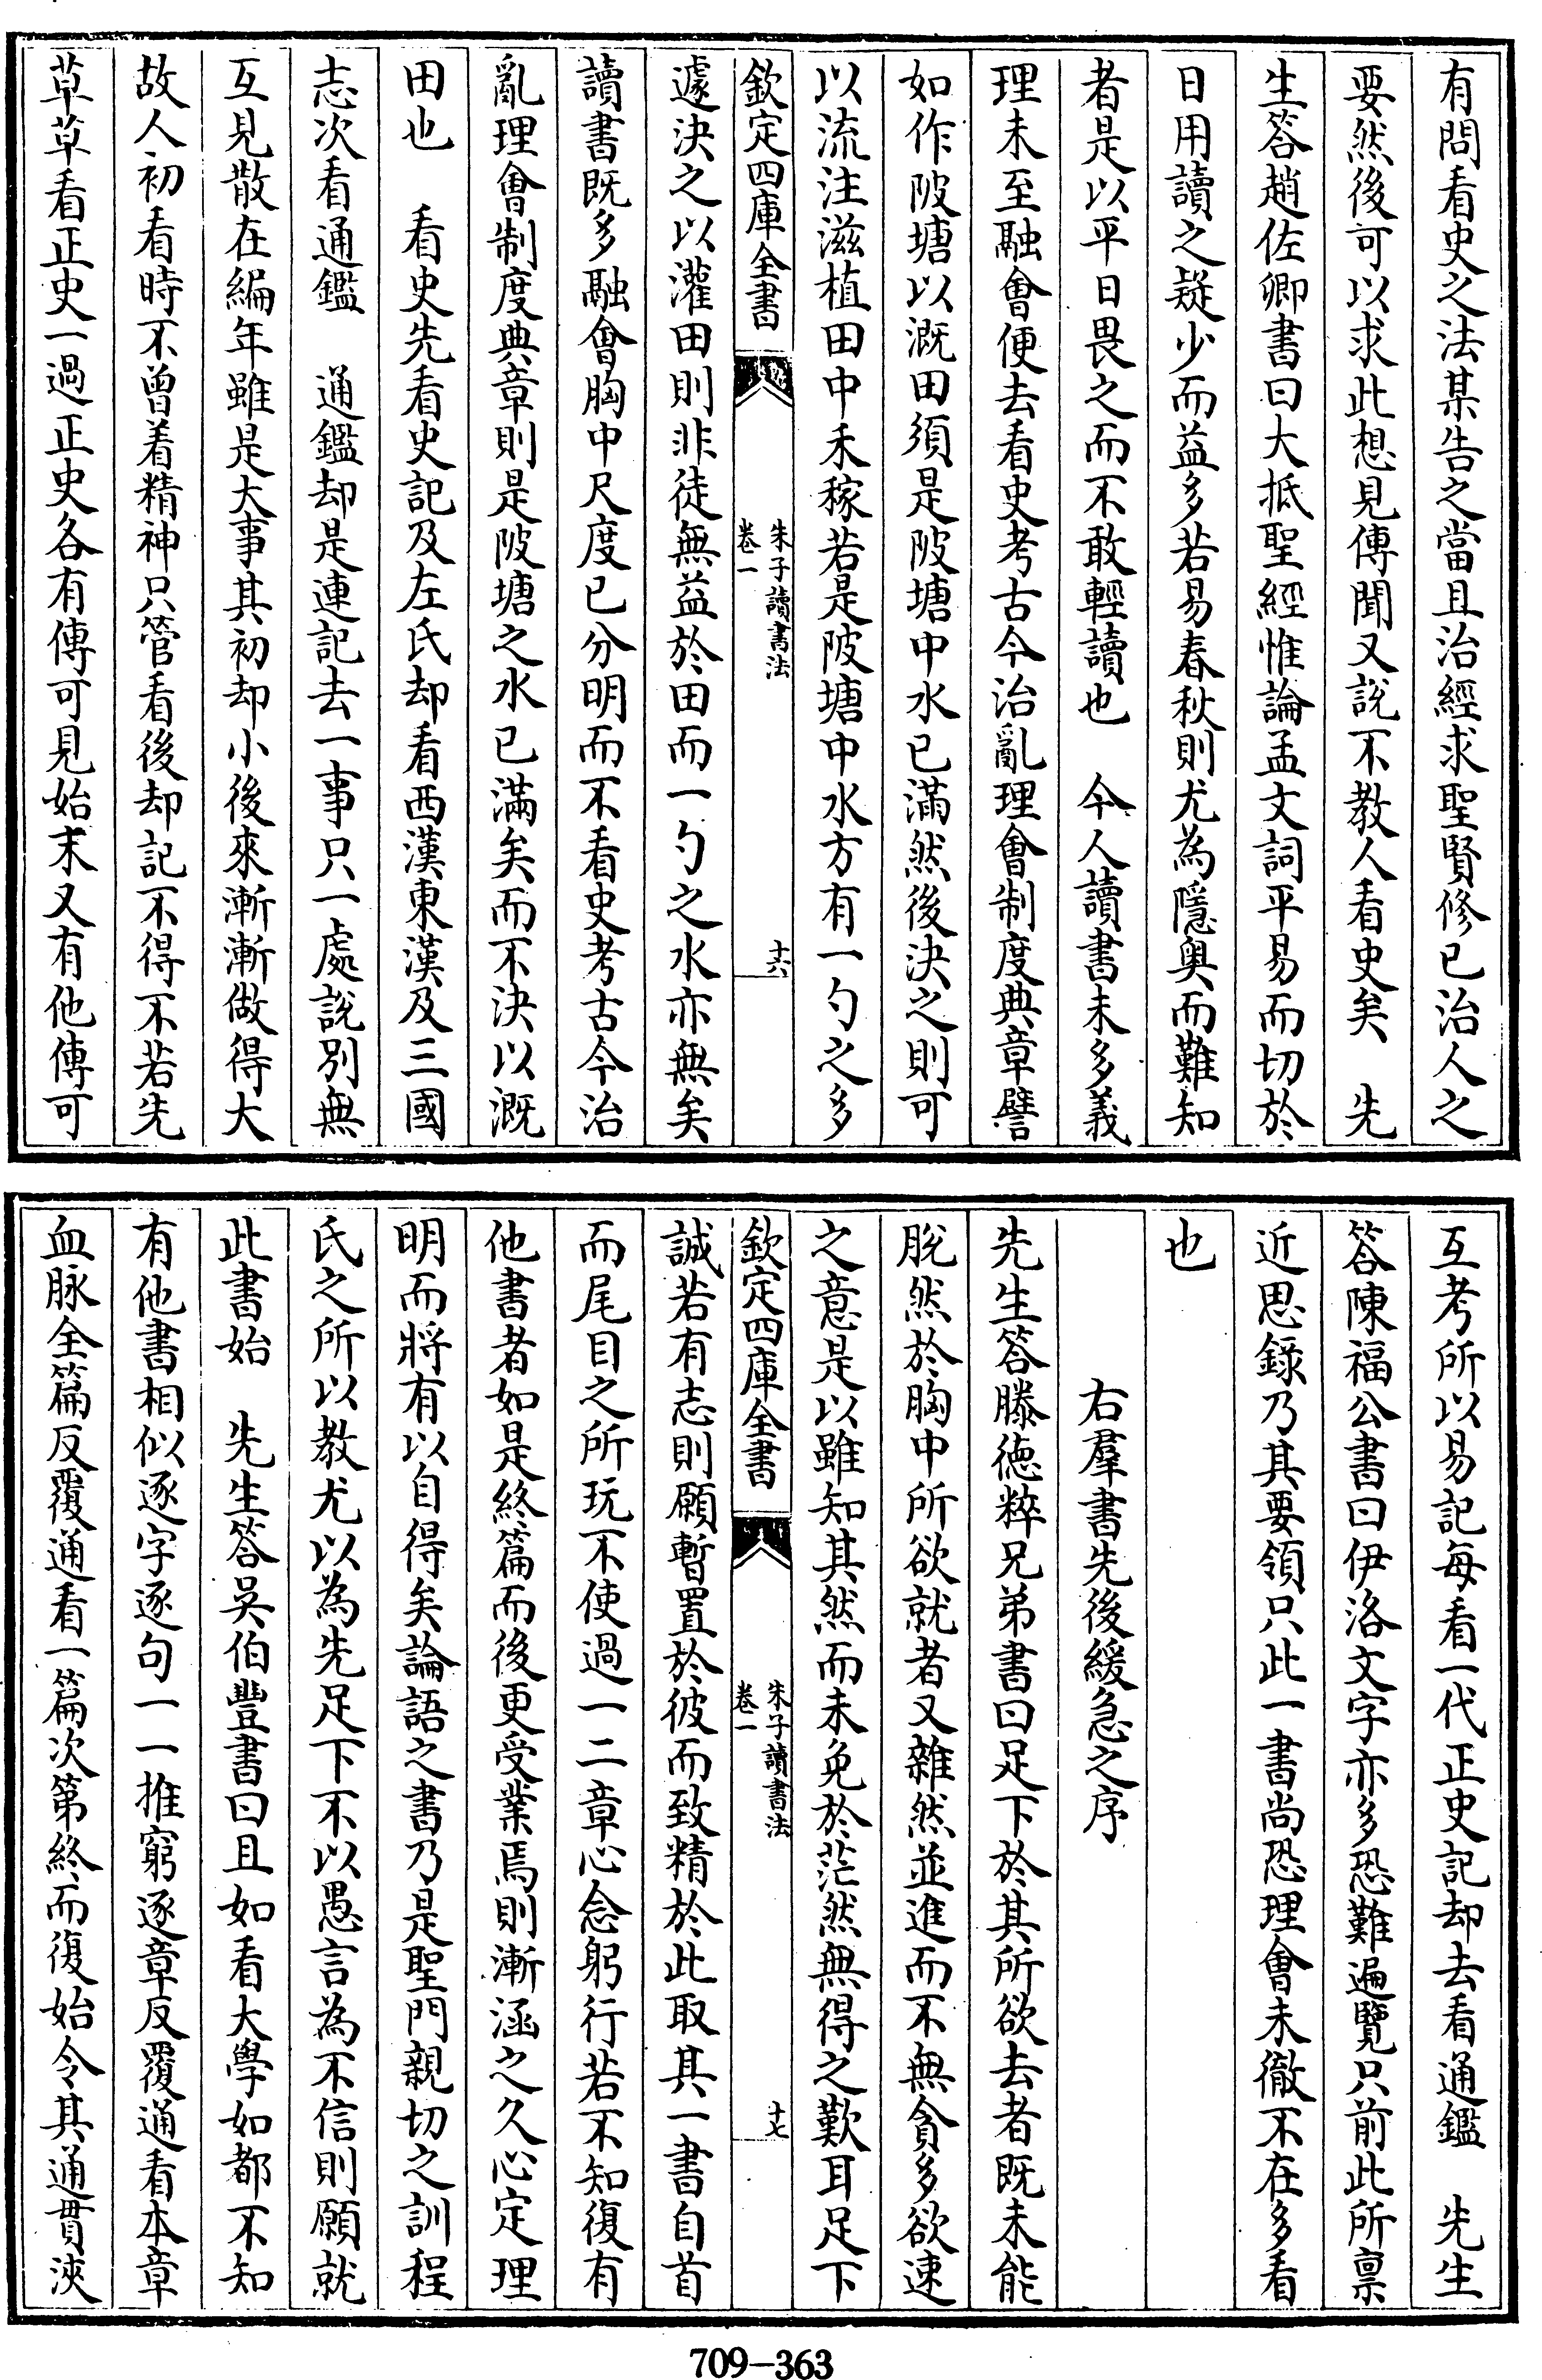 有問看史之法某告之當且治經求聖賢修已治人之
要然後可以求此想見傳聞又説不教人看史矣　先
生答趙佐卿書曰大抵聖經惟論孟文詞平易而切於
日用讀之疑少而益多若易春秋則尤為隱奥而難知
者是以平日畏之而不敢輕讀也　今人讀書未多義
理未至融會便去看史考古今治亂理會制度典章譬
如作陂塘以溉田須是陂塘中水已滿然後決之則可
以流注滋植田中禾稼若是陂塘中水方有一勺之多
欽定四庫全書
朱子讀書法
卷一
十六
遽決之以灌田則非徒無益於田而一勺之水亦無矣
讀書既多融會胸中尺度已分明而不看史考古今治
亂理會制度典章則是陂塘之水已滿矣而不決以溉
田也　看史先看史記及左氏却看西漢東漢及三國
志次看通鑑　通鑑却是連記去一事只一處説别無
互見散在編年雖是大事其初却小後來漸漸做得大
故人初看時不曾着精神只管看後却記不得不若先
草草看正史一過正史各有傳可見始末又有他傳可
互考所以易記每看一代正史記却去看通鑑　先生
答陳福公書曰伊洛文字亦多恐難遍覽只前此所禀
近思錄乃其要領只此一書尚恐理會未徹不在多看
也
右羣書先後緩急之序
先生答滕德粹兄弟書曰足下於其所欲去者既未能
脫然於胸中所欲就者又雜然並進而不無貪多欲速
之意是以雖知其然而未免於茫然無得之歎耳足下
欽定四庫全書
朱子讀書法
卷一
十七
誠若有志則願暫置於彼而致精於此取其一書自首
而尾目之所玩不使過一二章心念躬行若不知復有
他書者如是終篇而後更受業焉則漸涵之久心定理
明而將有以自得矣論語之書乃是聖門親切之訓程
氏之所以教尤以為先足下不以愚言為不信則願就
此書始　先生答吳伯豐書曰且如看大學如都不知
有他書相似逐字逐句一一推窮逐章反覆通看本章
血脉全篇反覆通看一篇次第終而復始令其通貫浹
709-363